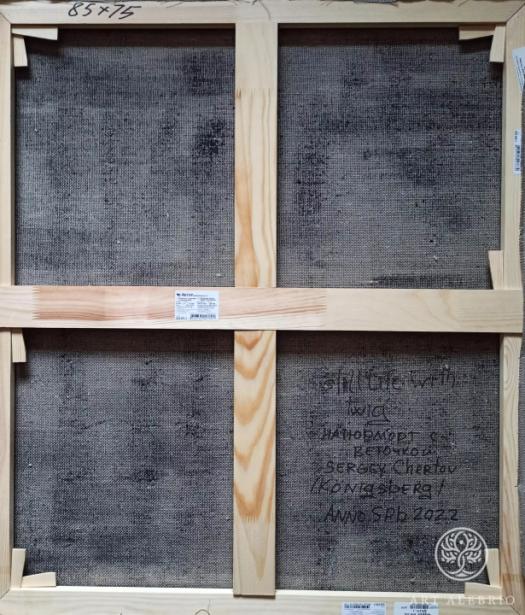 85×75
still life with
twig
натюрморт с
веточкой
SERGEY Chertov
/KÖNIGSBERG/
ANNO SPb 2022
ART ALEBRIO